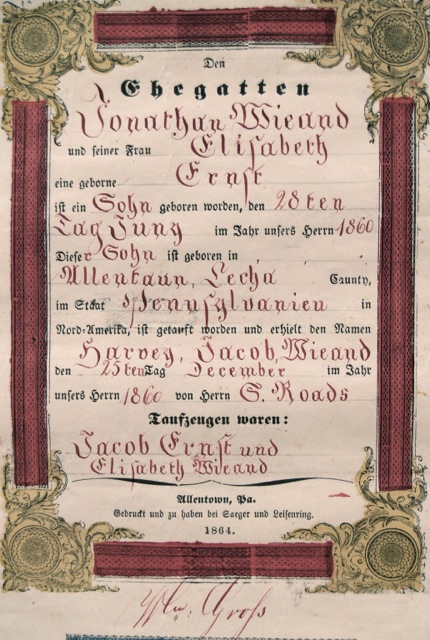 Den
Ehegatten
Jonathan Wieand
und seiner Frau Elisabeth
Ernst
eine geborne
ist ein Sohn geboren worden, den 28ten
Tag Juny im Jahr unsers Herrn 1860
Dieser Sohn ist geboren in
Allentaun, Lecha Caunty,
im Stäät Pennsylvanien in
Nord-Amerika, ist getauft worden und erhielt den Namen
Harvey, Jacob, Wieand
den 25ten Tag December im Jahr
unsers Herrn 1860 von Herrn S. Roads
Taufzeugen waren:
Jacob Ernst und
Elisabeth Wieand
Allentown, Pa.
Gedruckt und zu haben bei Saeger und Leisenring.
1864.
Wm. Gross